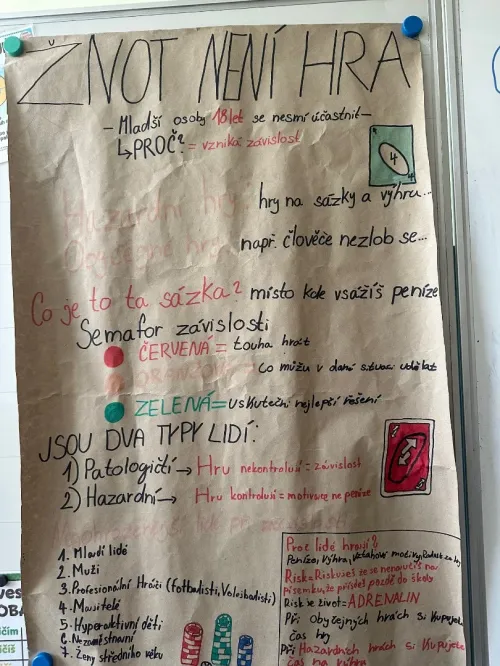 ŽNOT NENÍ HRA
- Mladší osoby 18 let se nesmí účastnit -
↳ PROČ? = vzniká závislost
4
4
Hazardní hry hry na sázky a výhru...
Obyčejné hry např. člověče nezlob se...
Co je to ta sázka? místo kde vsázíš peníze
Semafor závislosti
ČERVENÁ = touha hrát
ORANŽOVÁ = co můžu v daní situaci udělat
ZELENÁ = uskuteční nejlepší řešení
JSOU DVA TYPY LIDÍ:
1) Patologičtí → Hru nekontrolují = závislost
2) Hazardní → Hru kontrolují = motivute ne peníze
1. Mladí lidé
2. Muži
3. Profesionální Hráči (fotbadisti, Volejbadisti)
4. Musitelé
5. Hyperaktivní děti
6. Nezaměstnaní
7. Ženy středního věku
Proč lidé hrají?
Peníze, Výhra, Vztahové motivy, Radost ze hry
Risk = Riskuješ že se nenaučíš na
písemku, že přídeš pozdě do školy
Risk je život = ADRENALIN
Při Obyčejných hrách si kupujete
čas hry
Při Hazardních hrách si kupujete
čas na výhru